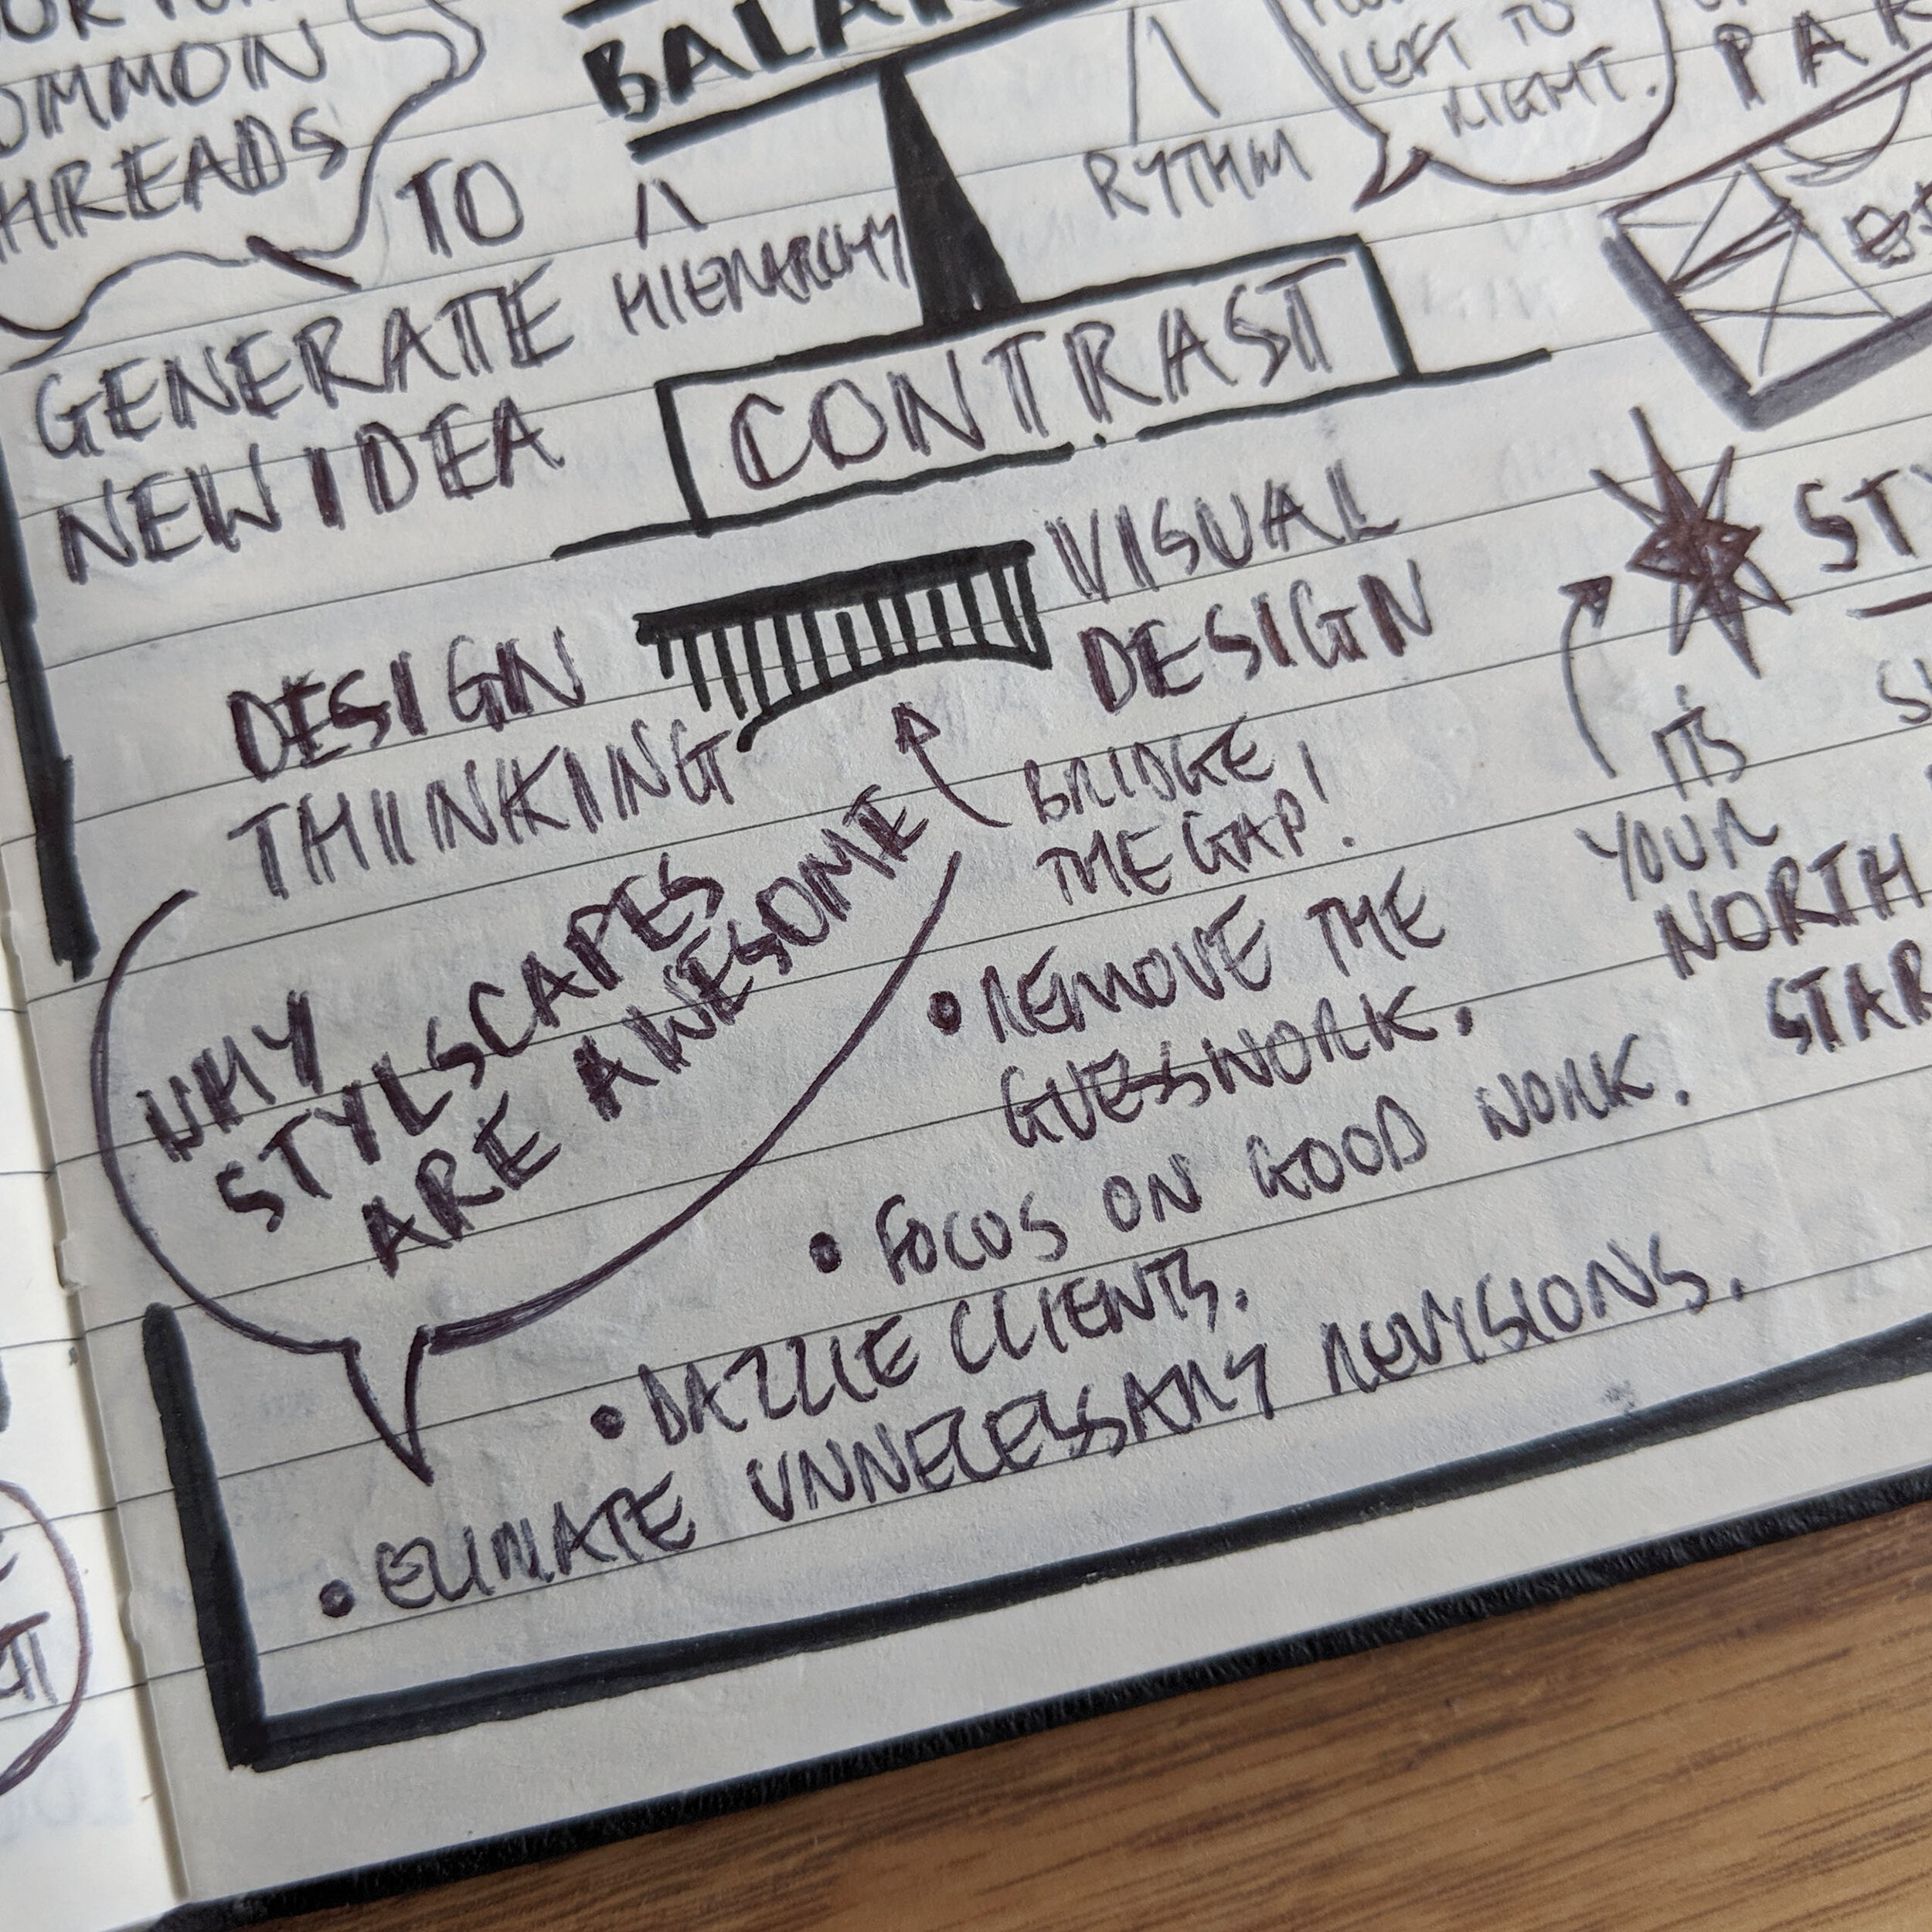 OMMON
HREADS
TO
GENERATE
NEW IDEA
HIERARCHY
RYTHM
LEFT TO
RIGHT.
CONTRAST
DESIGN
THINKING
VISUAL
DESIGN
BRIDGE
THE GAP!
WHY
STYLSCAPES
ARE AWESOME
• REMOVE THE
GUESSWORK.
• FOCUS ON GOOD WORK.
• DAZZLE CLIENTS.
• ELIMATE UNNECESSARY REVISIONS.
IT'S
YOUR
NORTH
STAR